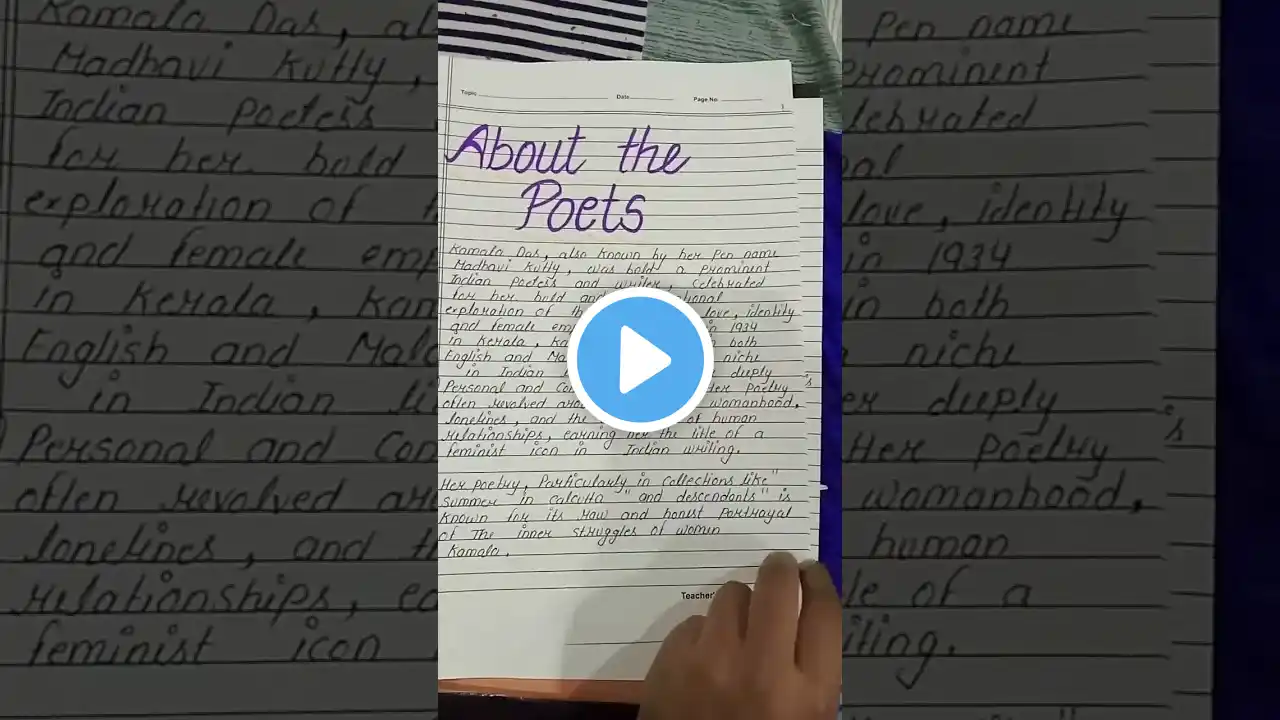 Topic Date Page No.
About the
Poets
Kamala Das, also known by her Pen name
Madhavi Kutty, was bold a prominent
Indian Poetess and writer, Celebrated
for her bold and
exploration of love, identity
and female in 1934
in Kerala, both
English and niche
in Indian deeply
Personal and Her Poetry's
often revolved womanhood,
lonelines, and the of human
relationships, earning her the title of a
feminist icon in Indian writing.
Her poetry, Particularly in collections like "
Summer in calcutta " and descendants " is
known for its raw and honest Portrayal
of The inner struggles of women
Kamala.
Teacher'